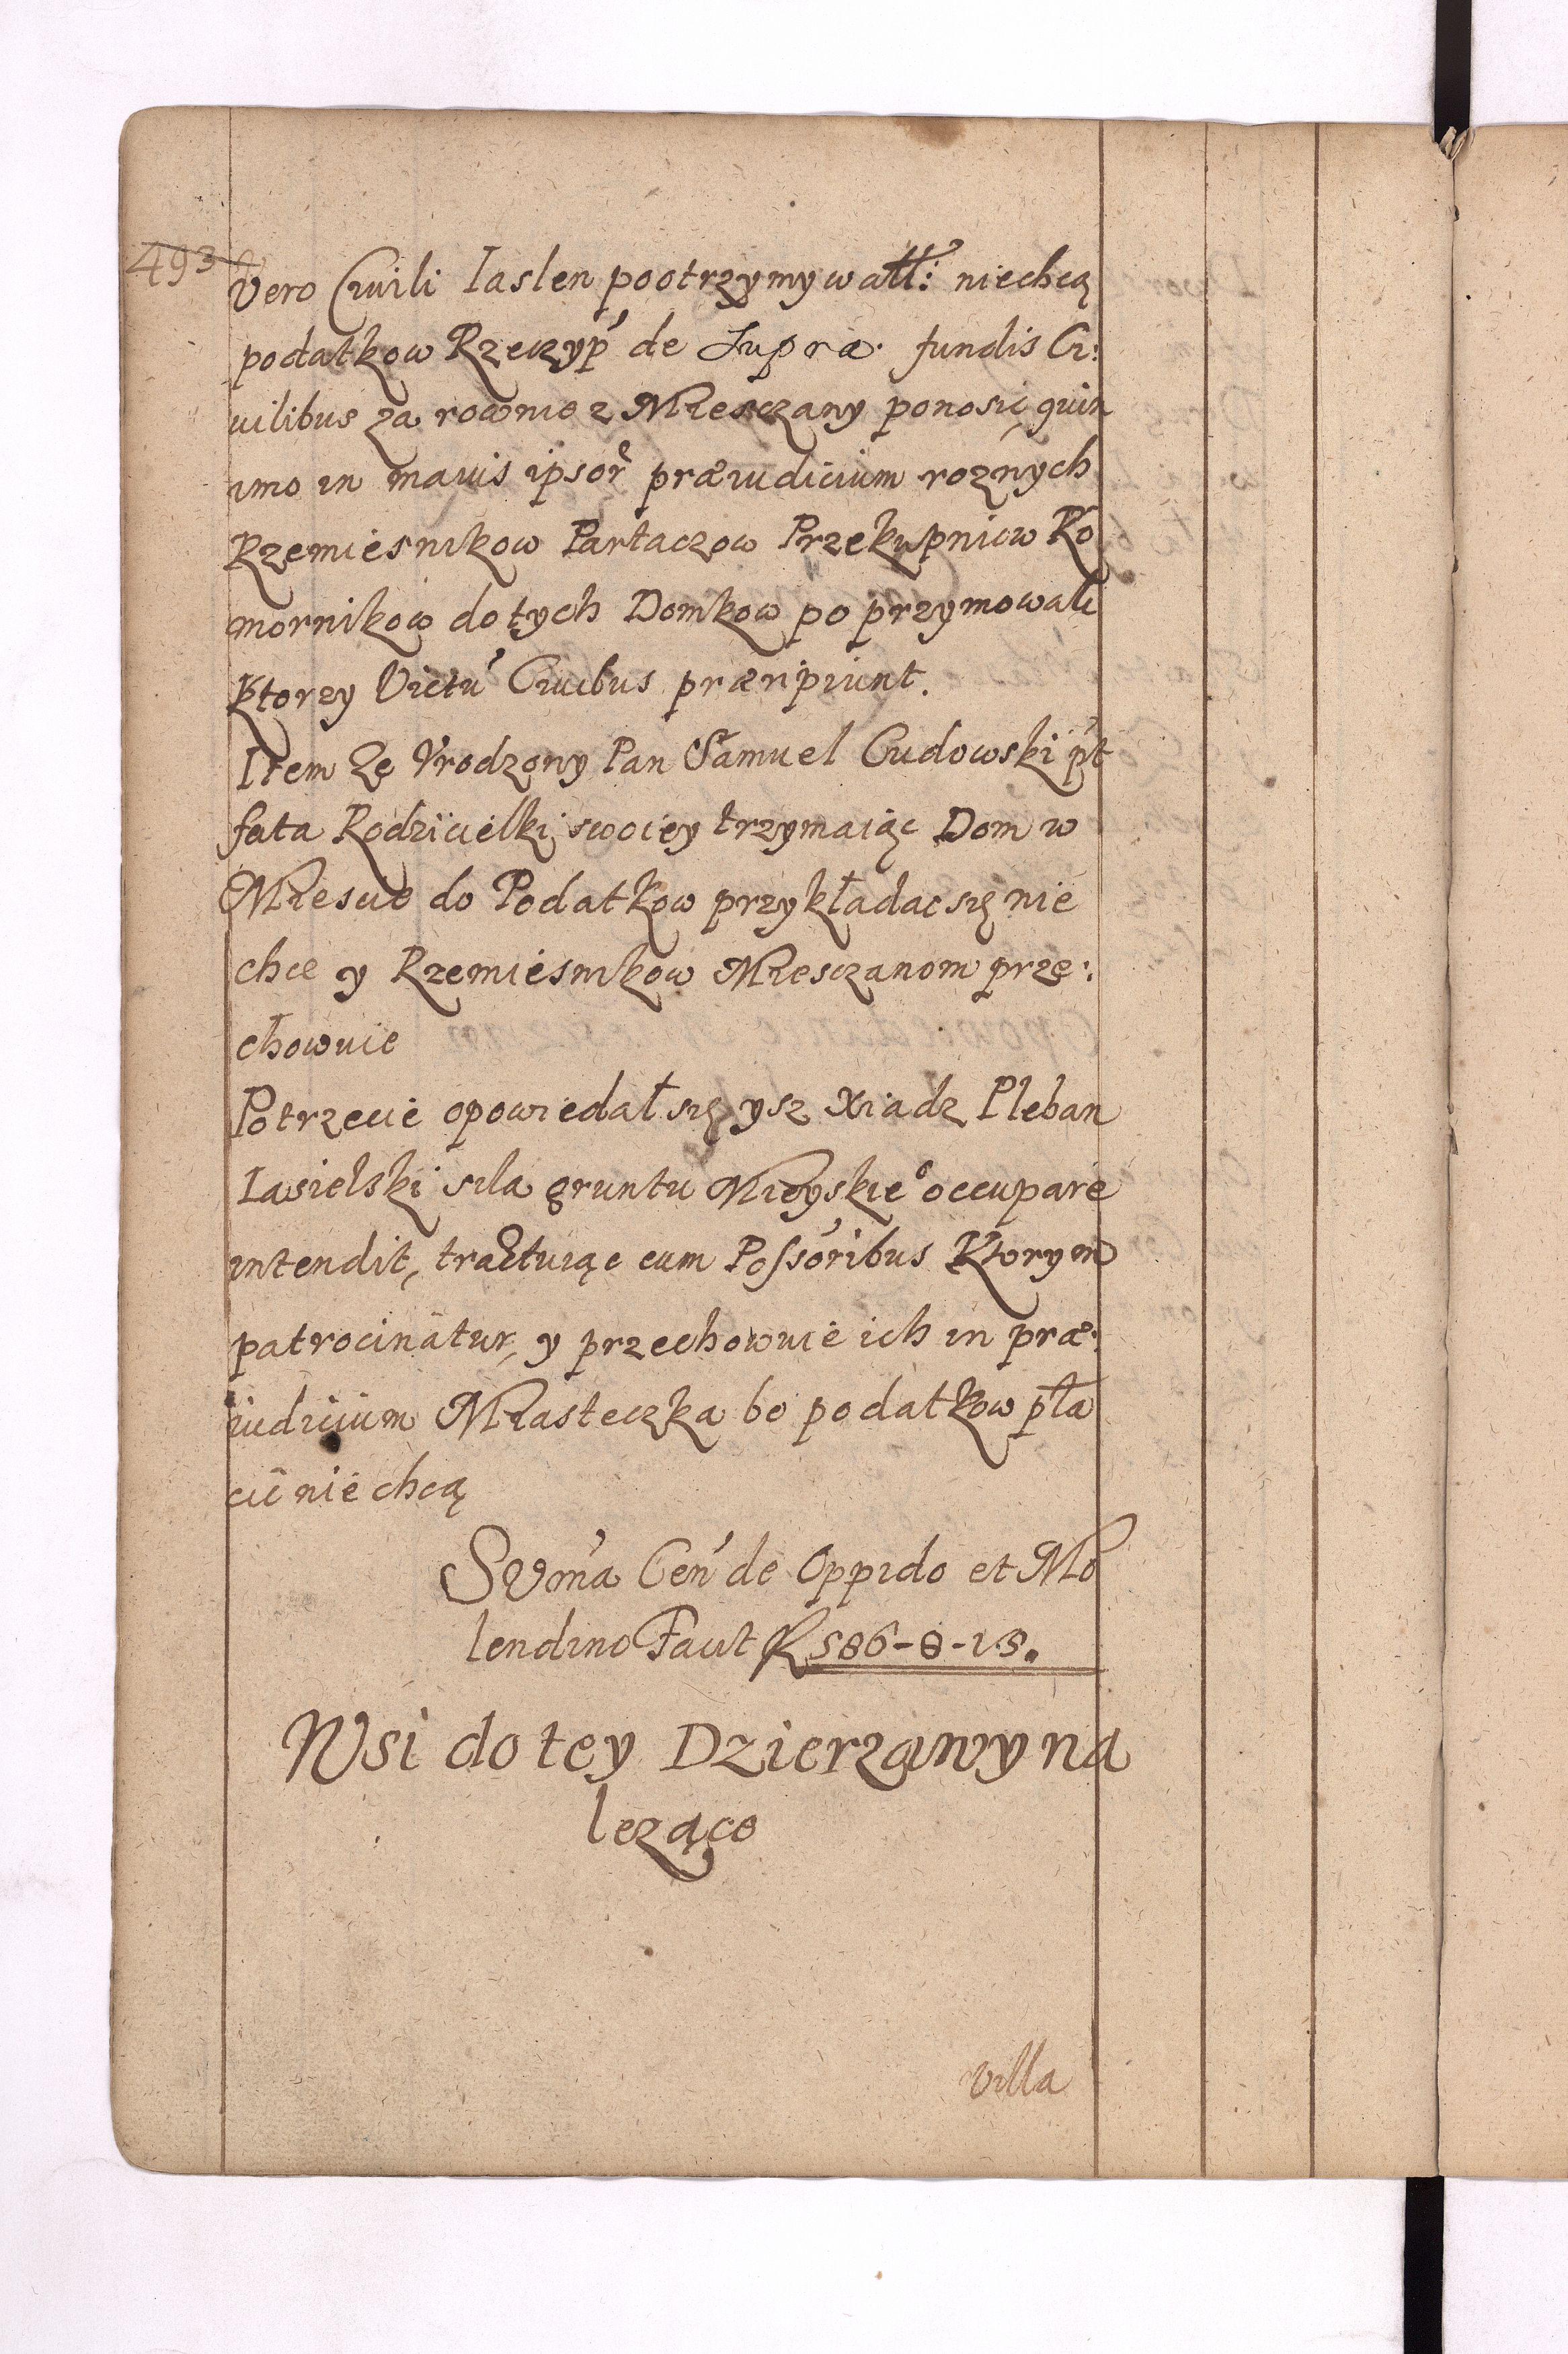 493
Vero Ciuili Iaslen pootrzymywałł: niechcą
podatkow Rzeczyp' de Supra. fundis Ci:
uilibus za rowno z Miesczany ponosić, quin
imo in maius ipsor̃ præiudicium roznych
Rzemiesnikow Partaczow Przekupniow Ko
mornikow do tych Domkow po przymowali
Ktorzy Victu' Ciuibus præripiunt.
Item Ze Vrodzony Pan Samuel Cudowski p't
fata Rodzicielki swoiey trzymaiąc Dom w
Miescie do Podatkow przykładac się nie
chce y Rzemiesnikow Miesczanom prze:
chowuie
Potrzecie opowiedał się ysz Xiadz Pleban
Iasielski siła gruntu Mieyskie° occupare
intendit, tractuiąc cum Possoribus Ktorym
patrocinatur, y przechowuie ich in præ:
iudicium Miasteczka bo podatkow pła
cić nie chcą
Sum̃a Cen' de Oppido et Mo
lendino Facit R 586-8-13.
Wsi do tey Dzierzawy na
lezące
villa